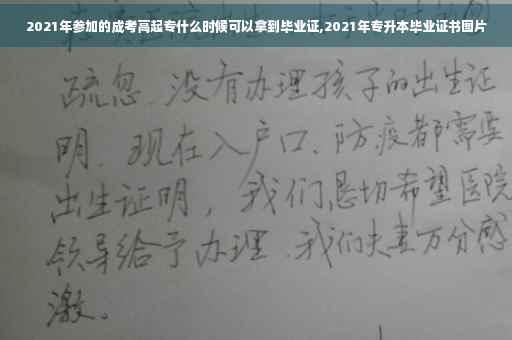 2021年参加的成考高起专什么时候可以拿到毕业证,2021年专升本毕业证书图片
疏忽、没有办理孩子的出生证
明、现在入户口、防疫都需要
出生证明，我们恳切希望医院
领导给予办理、我们夫妻万分感
激。